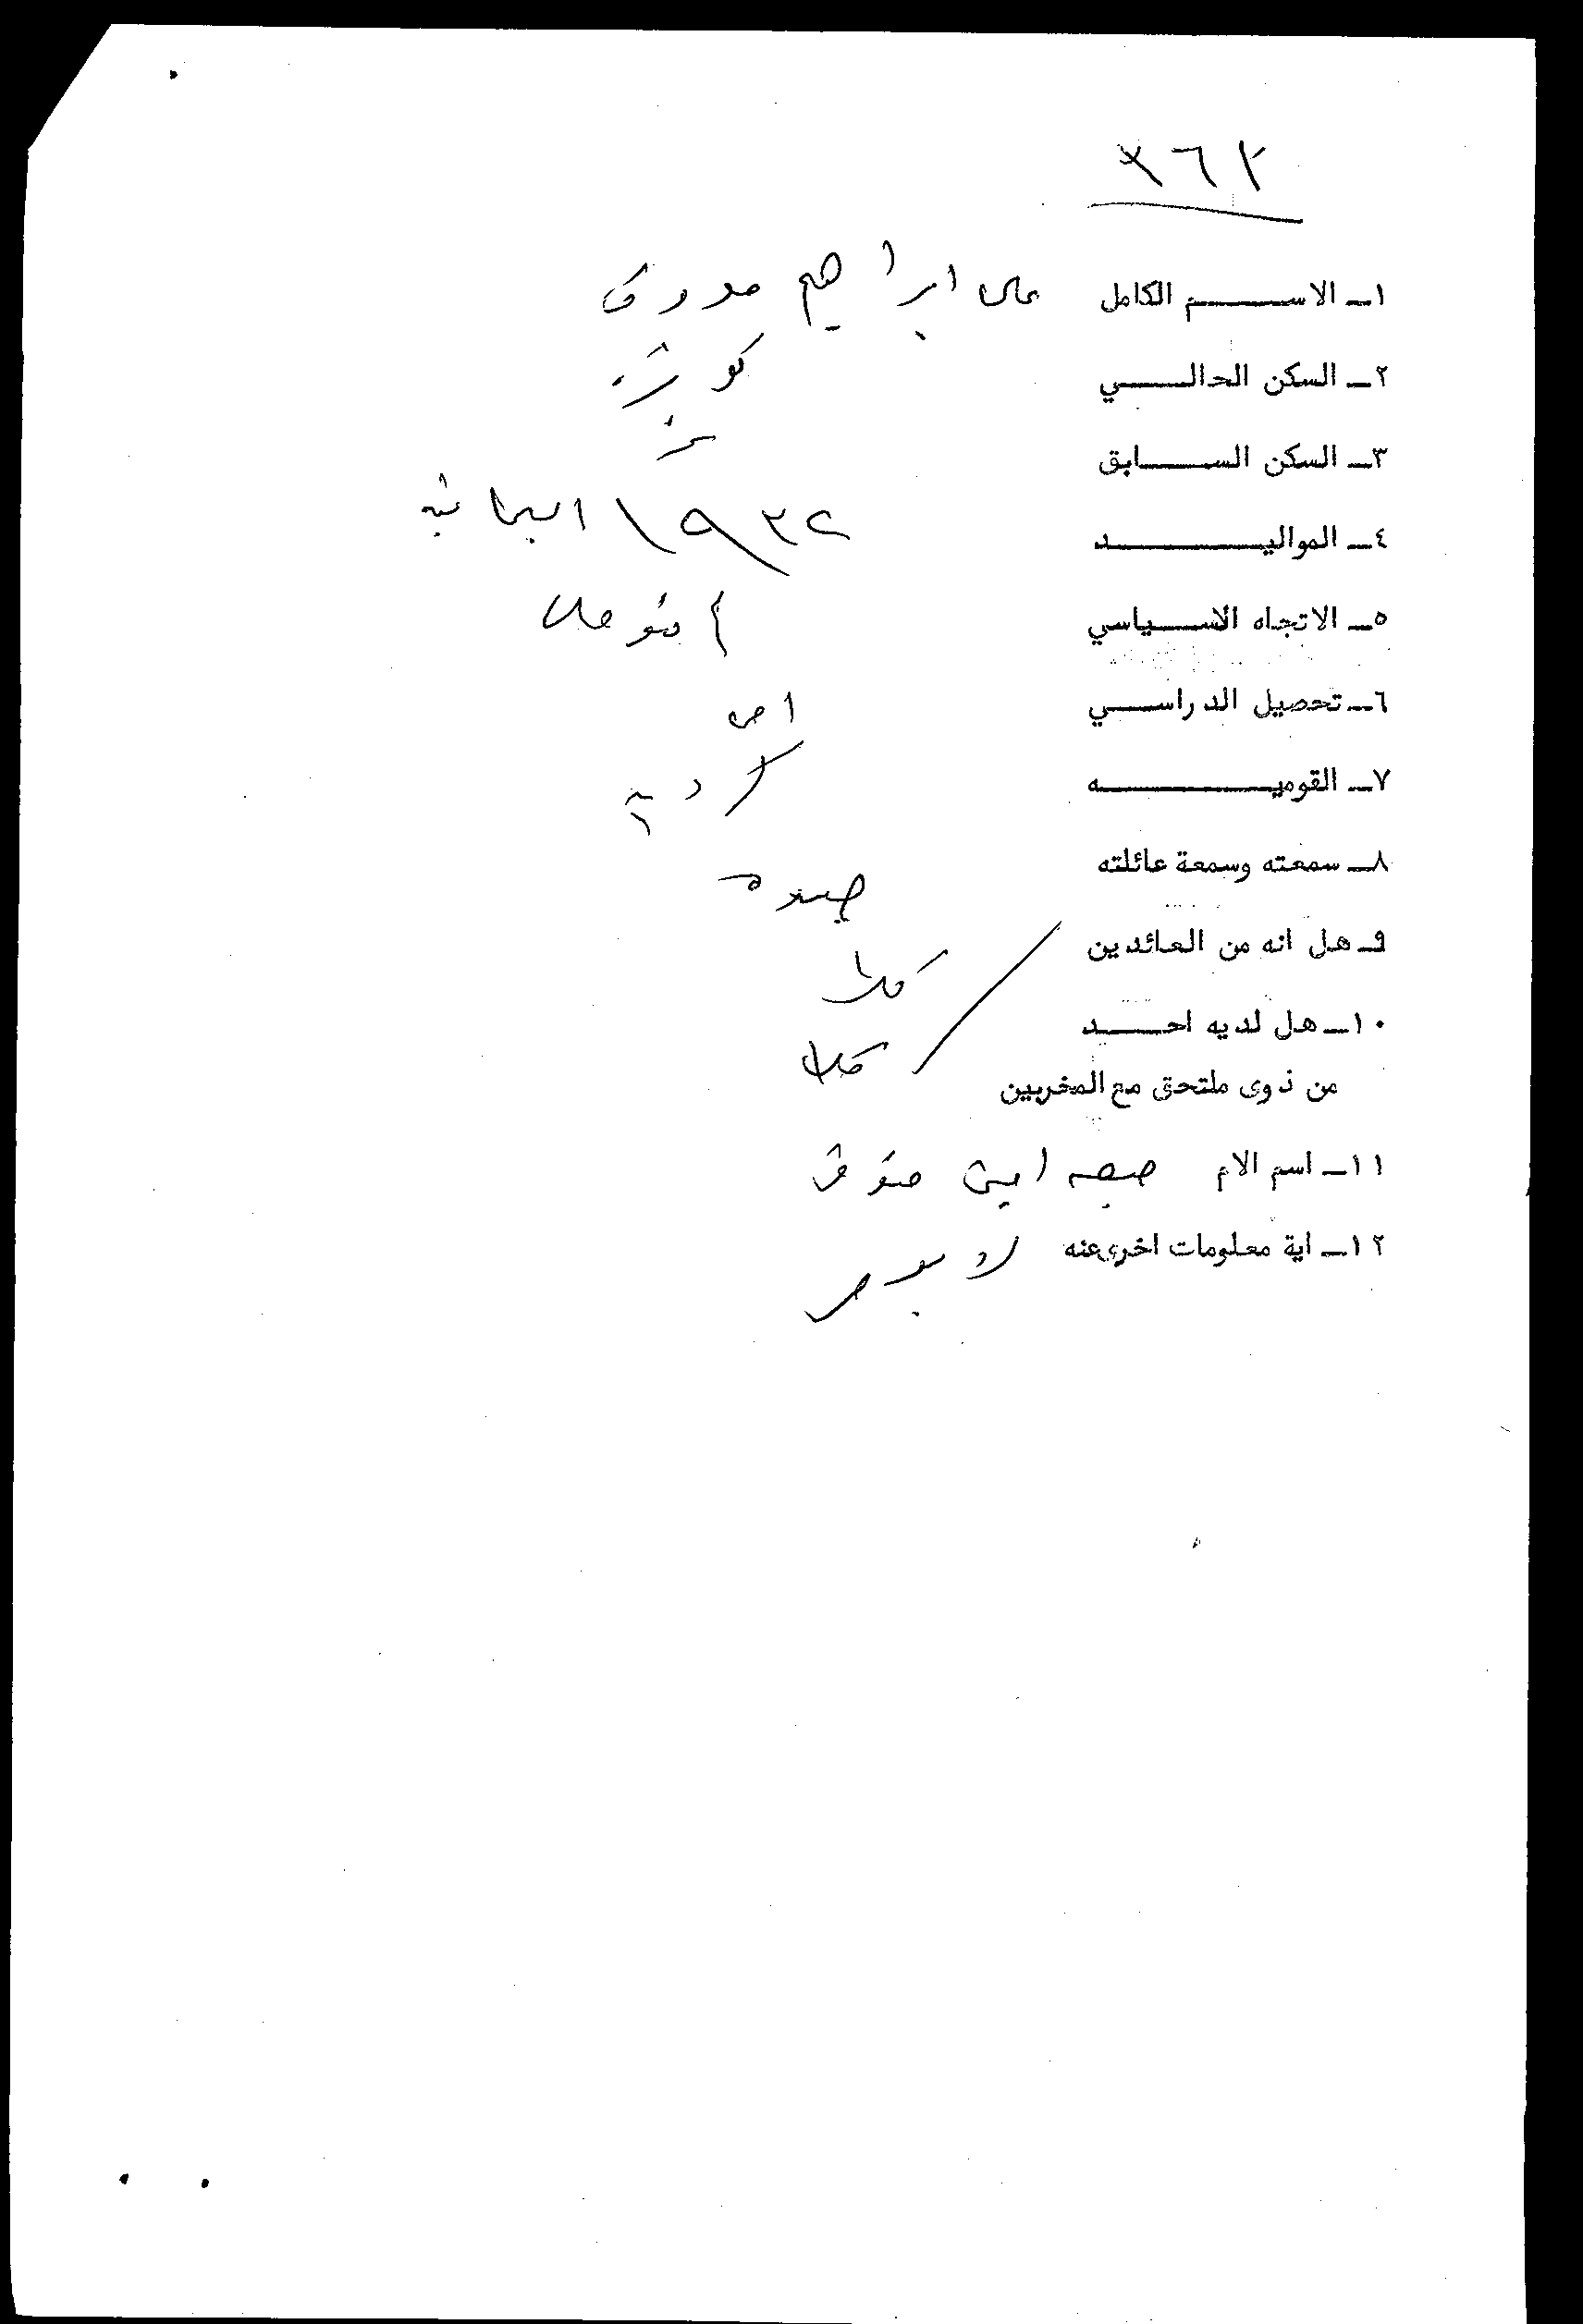 ٣٦٢
١ـ الاسم الكامل علي ابراهيم
٢ـ السكن الحالي
٣ـ السكن السابق
٤ـ المواليد ١٩٣٢ السليمانية
٥ـ الاتجاه الاسياسي
٦ـ تحصيل الدراسي امي
٧ـ القوميه كردية
٨ـ سمعته وسمعة عائلته جيده
٩ـ هل انه من العائدين كلا
١٠ـ هل لديه احد كلا
من ذوى ملتحق مع المخربين
١١ـ اسم الام امين
١٢ـ اية معلومات اخرى عنه لا يوجد